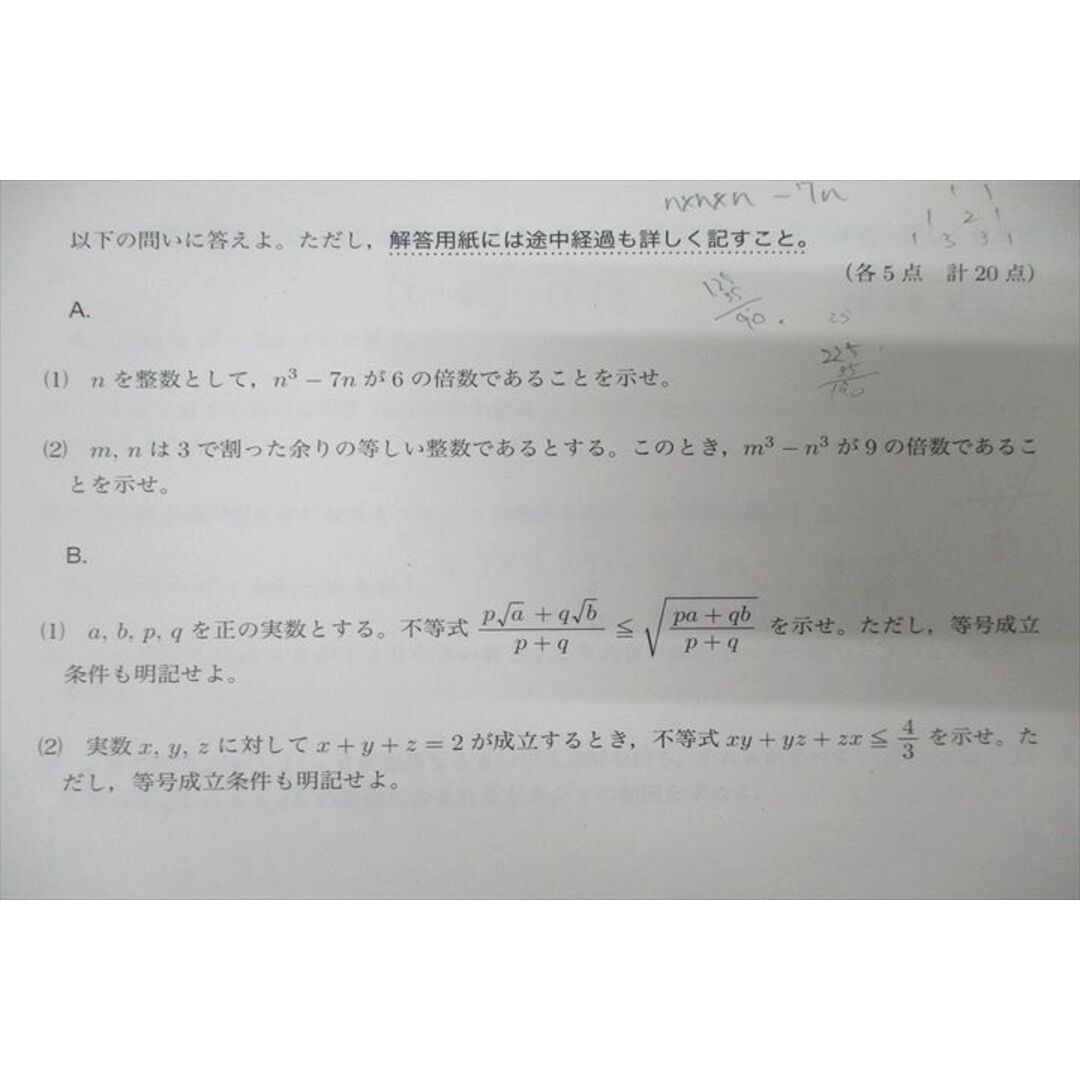 n×n×n − 7n
1 1
1 2 1
1 3 3 1
以下の問いに答えよ。ただし，解答用紙には途中経過も詳しく記すこと。
(各5点 計20点)
125
35
90.
25
225
35
190
A.
(1) nを整数として，n³ − 7nが6の倍数であることを示せ。
(2) m, nは3で割った余りの等しい整数であるとする。このとき，m³ − n³が9の倍数であるこ
とを示せ。
B.
(1) a, b, p, qを正の実数とする。不等式 (p√a + q√b)/(p + q) ≦ √((pa + qb)/(p + q)) を示せ。ただし，等号成立
条件も明記せよ。
(2) 実数x, y, zに対してx + y + z = 2が成立するとき，不等式xy + yz + zx ≦ 4/3 を示せ。た
だし，等号成立条件も明記せよ。